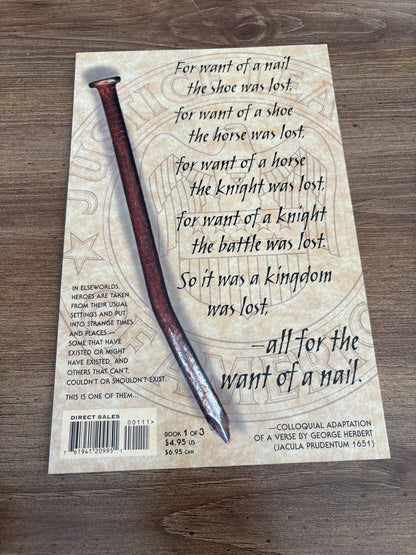 For want of a nail
the shoe was lost,
for want of a shoe
the horse was lost,
for want of a horse
the knight was lost,
for want of a knight
the battle was lost.
So it was a kingdom
was lost,
—all for the
want of a nail.
—COLLOQUIAL ADAPTATION
OF A VERSE BY GEORGE HERBERT
(JACULA PRUDENTUM 1651)
IN ELSEWORLDS,
HEROES ARE TAKEN
FROM THEIR USUAL
SETTINGS AND PUT
INTO STRANGE TIMES
AND PLACES—
SOME THAT HAVE
EXISTED OR MIGHT
HAVE EXISTED, AND
OTHERS THAT CAN'T,
COULDN'T OR SHOULDN'T EXIST.
THIS IS ONE OF THEM...
DIRECT SALES
00111>
7 61941 20995 1
BOOK 1 OF 3
$4.95 US
$6.95 CAN
JUSTICE LEA
AMERIC